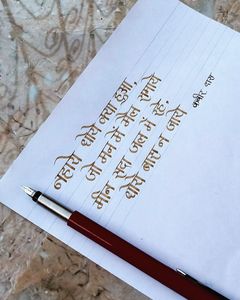 नहाये धोये क्या हुआ,
जो मन में मैल समाये
मीन सदा जल में रहे
धोये बास न जाये
कबीर दास